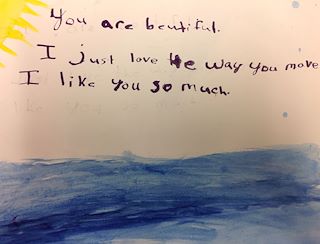 You are beautiful.
I just love the way you move
I like you so much.